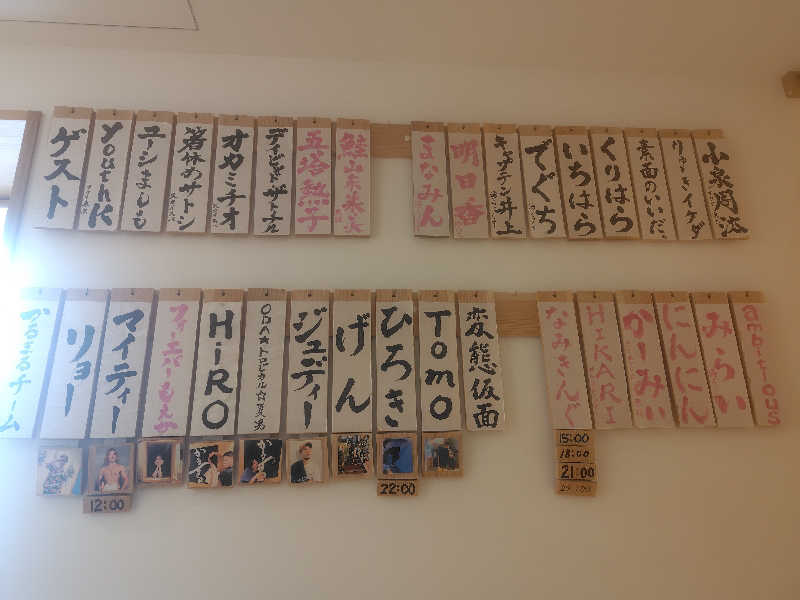 ゲスト
youthK
ユージまじも
若林のサトシ
オカミチオ
五塔熱子
鮭山未菜美
まなみん
明日香
キャプテン井上
でぐち
いちはら
くりはら
素面のいいだ。
りゅうきイケダ
小泉周汰
かるまるチーム
リョー
マイティー
フィーバーもえか
HiRO
ODA☆トロピカル☆夏男
ジュディー
げん
ひろき
Tomo
変態仮面
なみきんぐ
HIKARI
かーみぃ
にんにん
みらい
ambitious
12:00
22:00
15:00
18:00
21:00